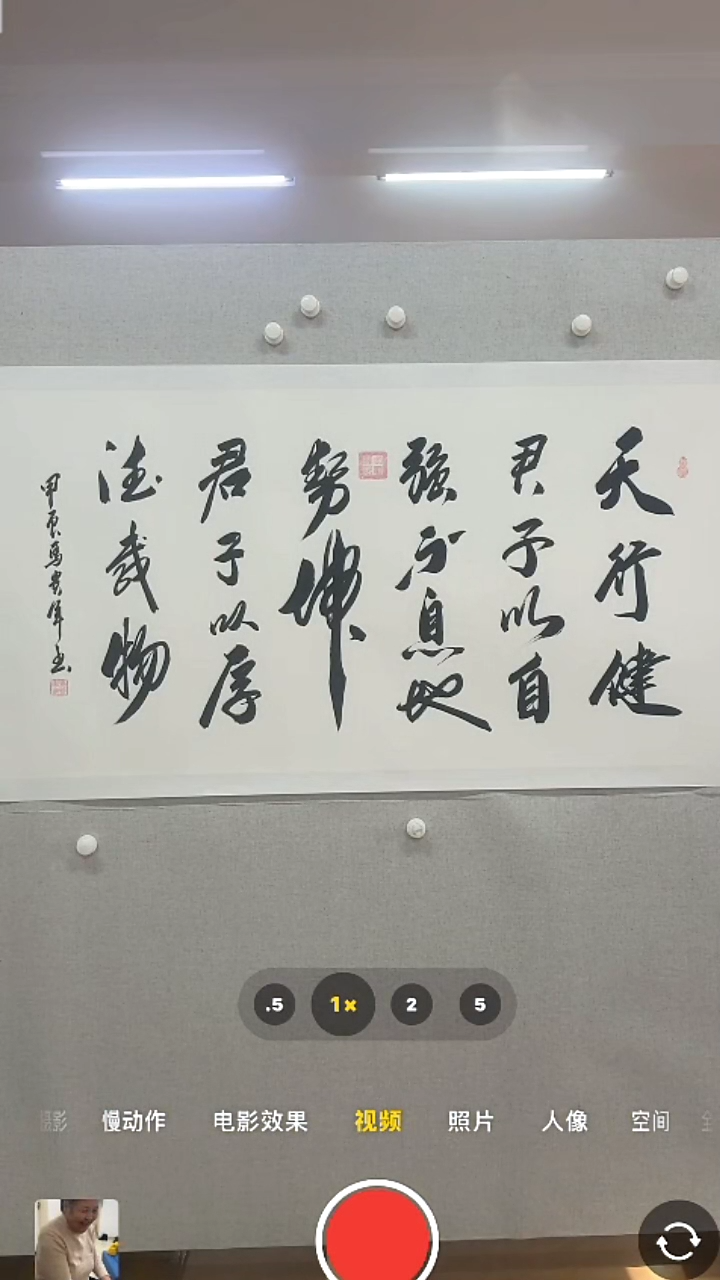 天行健
君子以自
强不息地
势坤
君子以厚
德载物
甲辰馬
.5 1× 2 5
慢动作 电影效果 视频 照片 人像 空间